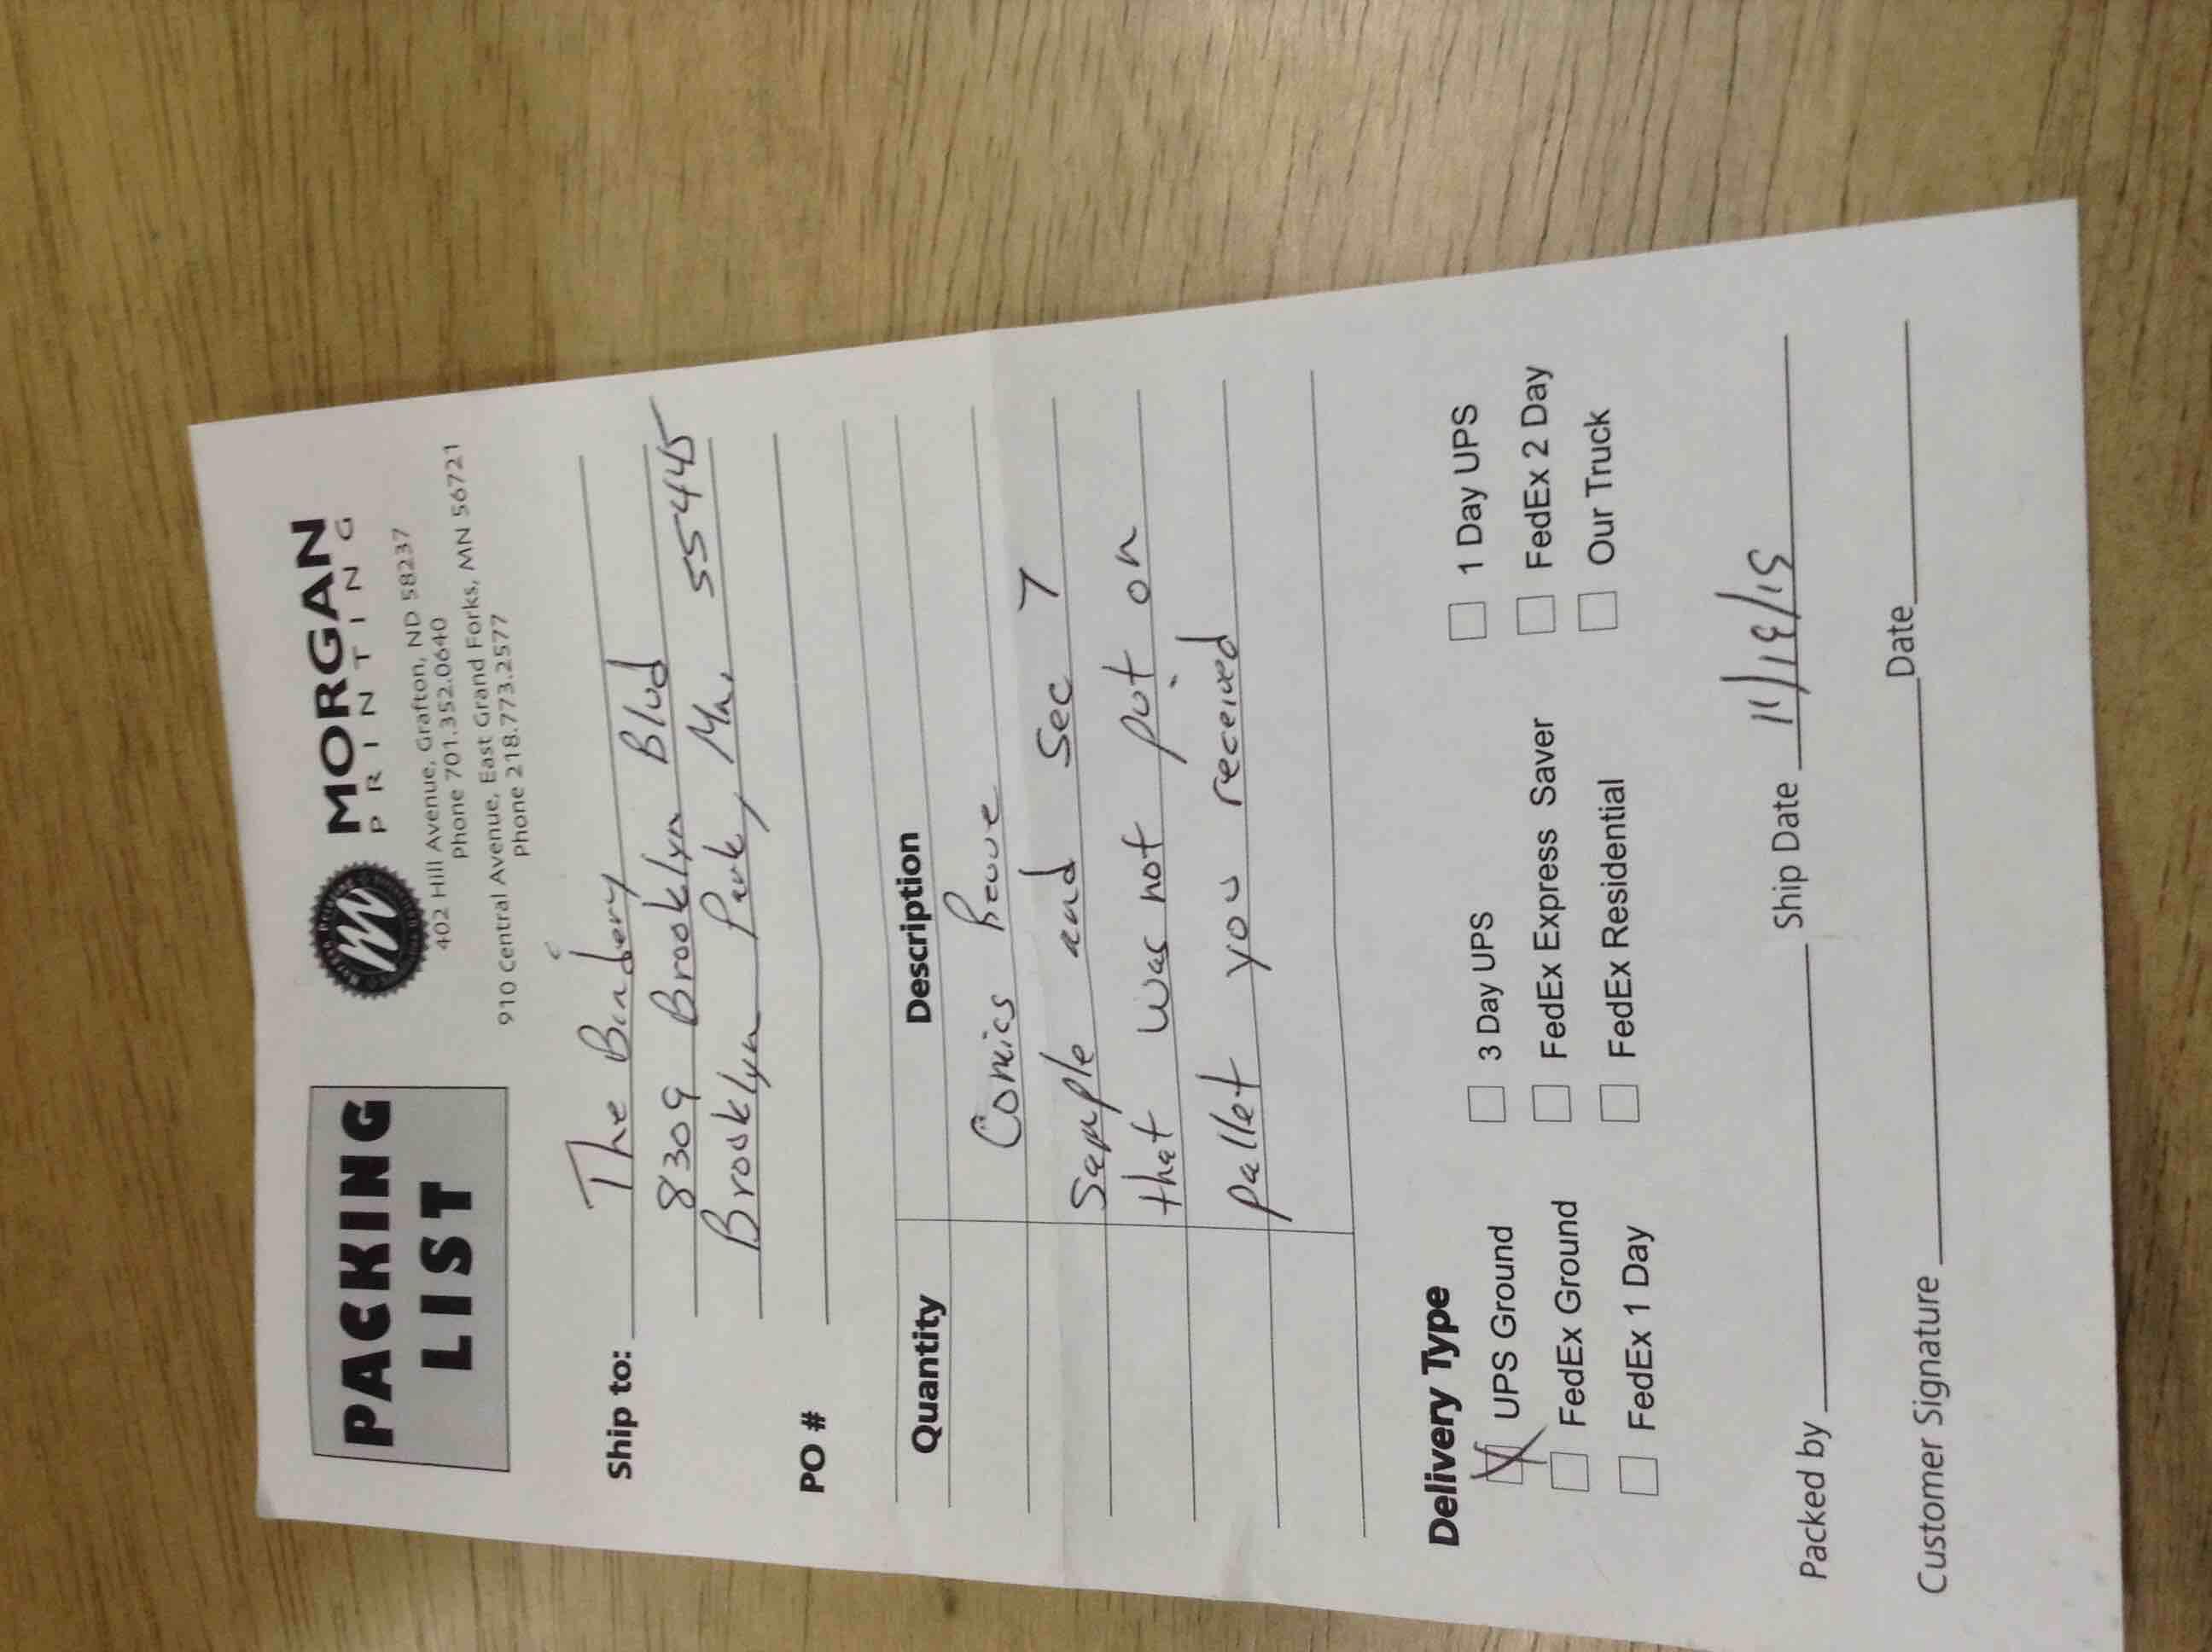 PACKING
LIST
MORGAN
PRINTING
402 Hill Avenue, Grafton, ND 58237
Phone 701.352.0640
910 Central Avenue, East Grand Forks, MN 56721
Phone 218.773.2577
Ship to: The Bindery
8309 Brooklyn Blvd
Brooklyn Park, Mn, 55445
PO #
Quantity Description
Comics Revue
Sample and Sec 7
that was not put on
pallet you received
Delivery Type
UPS Ground 3 Day UPS 1 Day UPS
FedEx Ground FedEx Express Saver FedEx 2 Day
FedEx 1 Day FedEx Residential Our Truck
Packed by Ship Date 11/19/15
Customer Signature Date